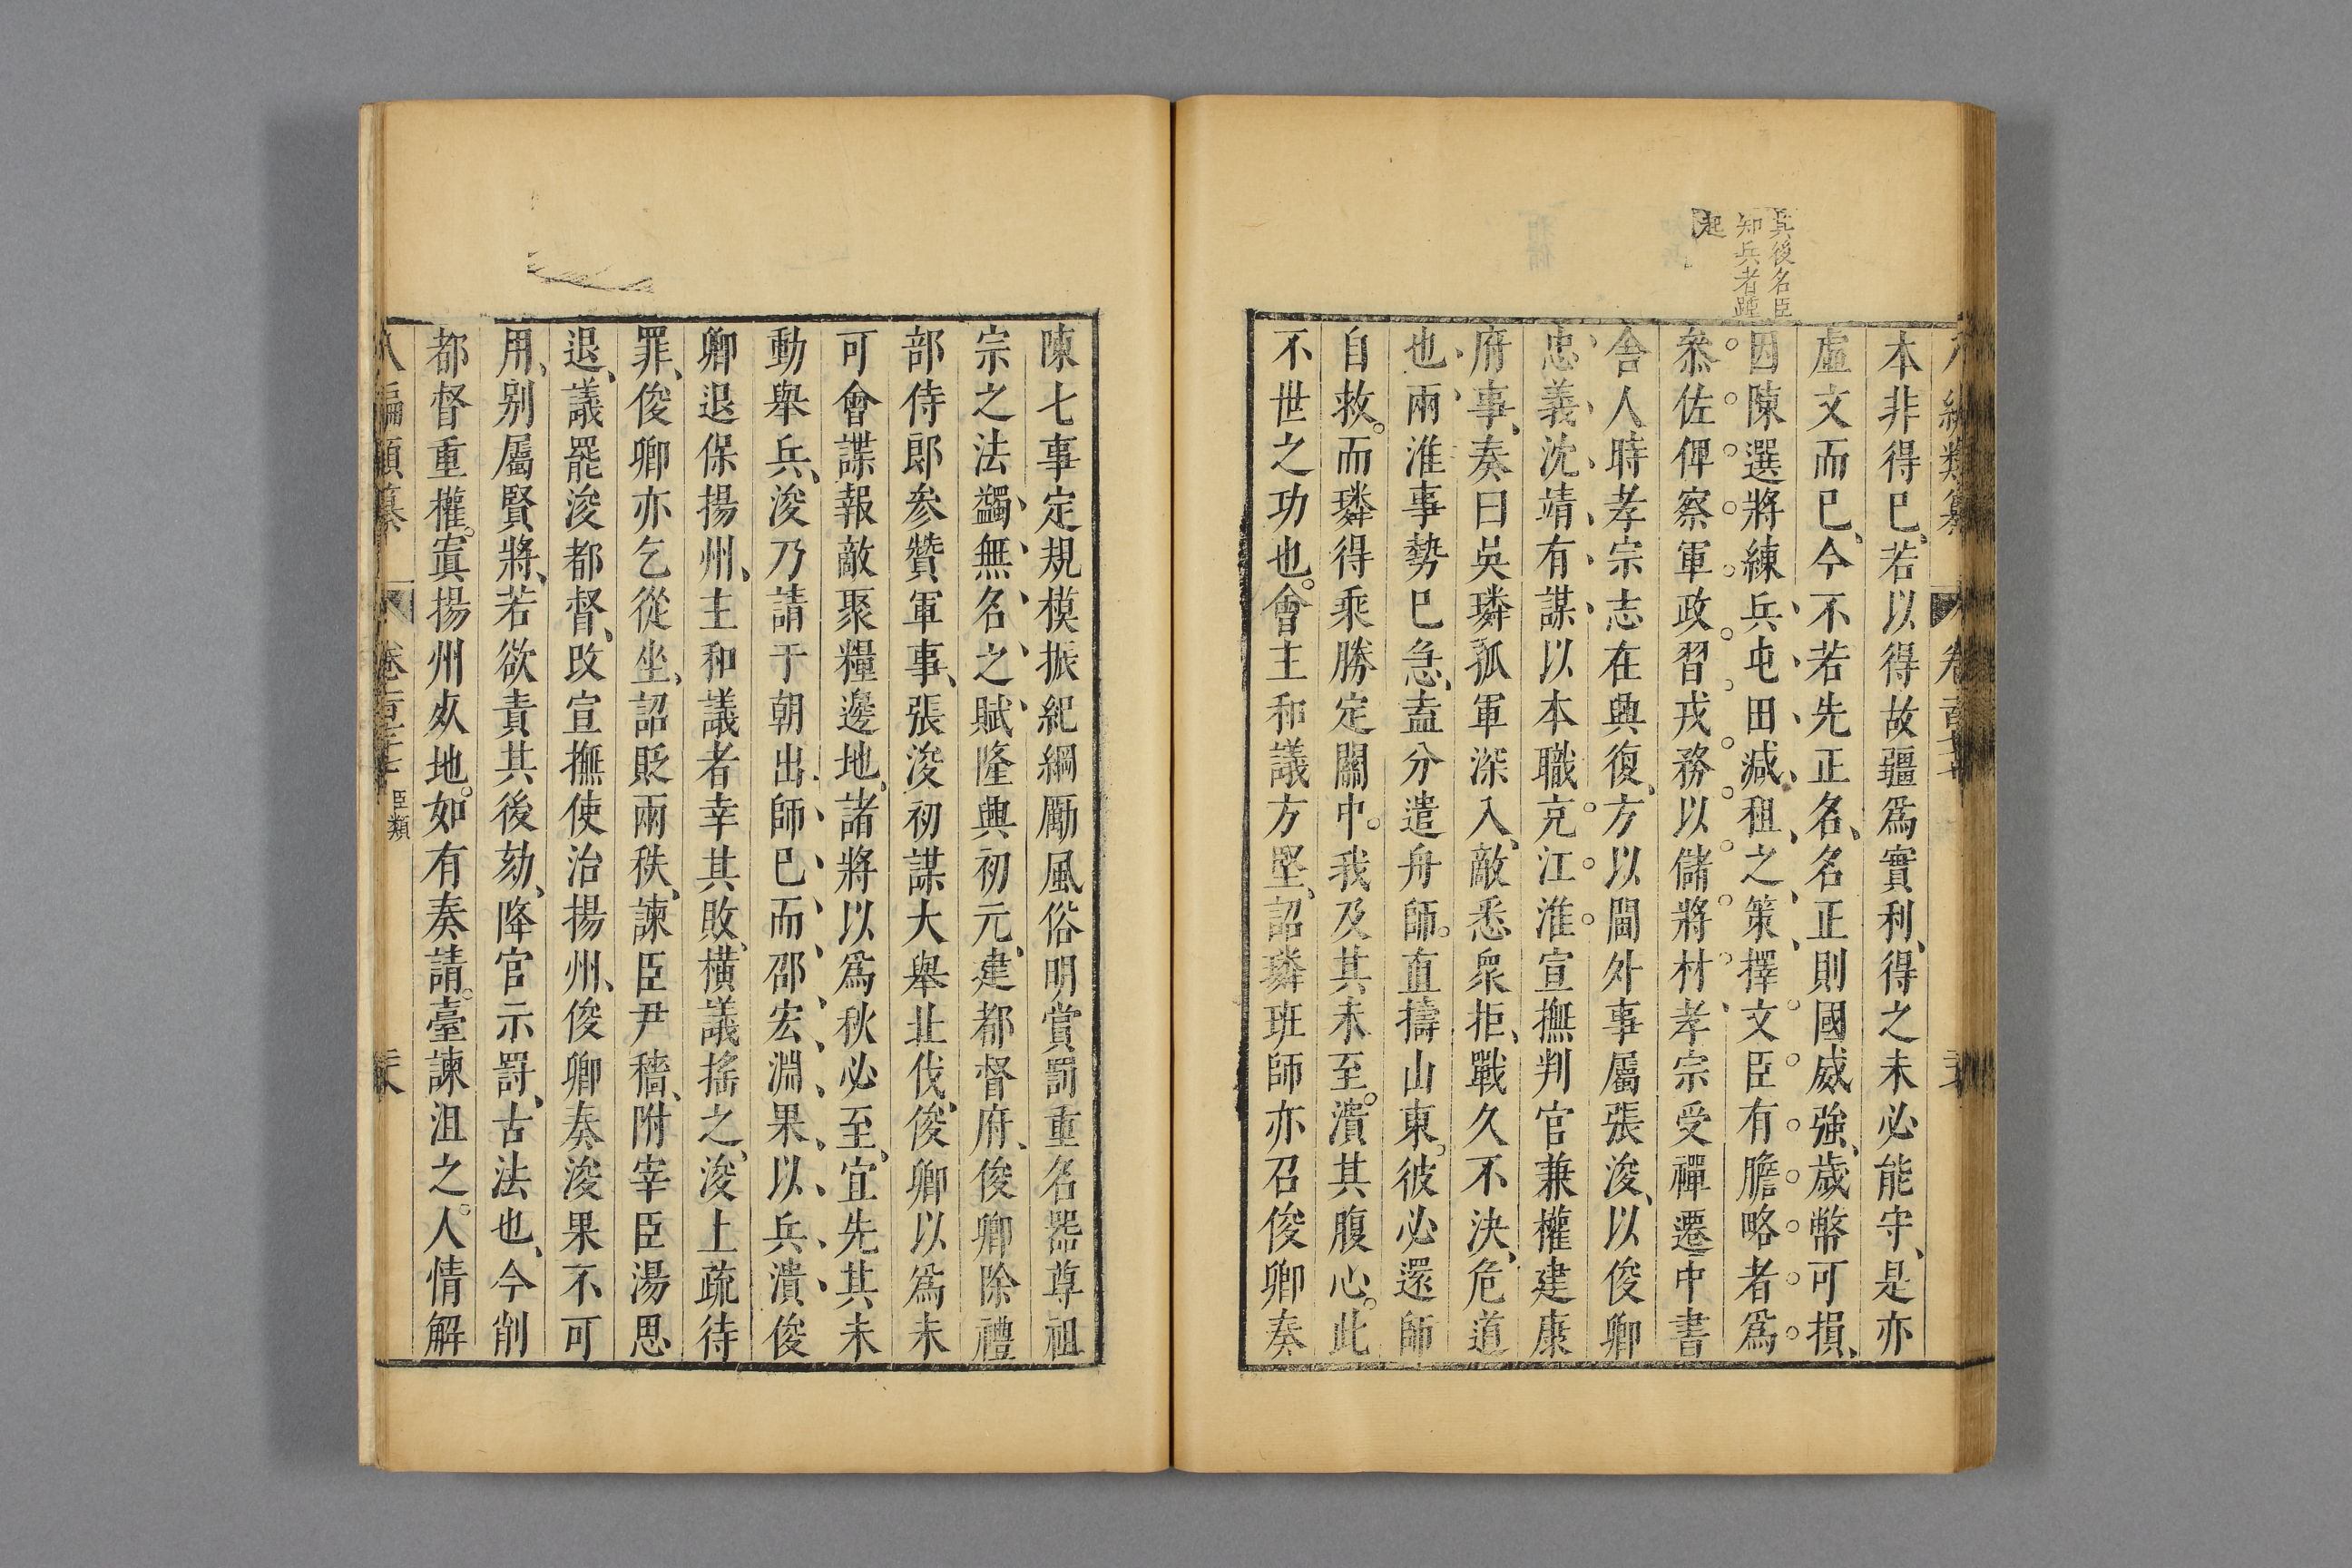 其後名臣
知兵者踵
起
八編類纂 卷百
本非得已若以得故疆爲實利得之未必能守是亦
虛文而已今不若先正名名正則國威強歲幣可損
因陳選將練兵屯田减租之策擇文臣有膽略者爲
叅佐俾察軍政習戎務以儲將材孝宗受禪遷中書
舍人時孝宗志在興復方以閫外事屬張浚以俊卿
忠義沈靖有謀以本職充江淮宣撫判官兼權建康
府事奏曰吳璘孤軍深入敵悉衆拒戰久不決危道
也兩淮事勢已急盍分遣舟師直擣山東彼必還師
自救而璘得乘勝定關中我及其未至潰其腹心此
不世之功也會主和議方堅詔璘班師亦召俊卿奏
陳七事定規模振紀綱勵風俗明賞罰重名器尊祖
宗之法蠲無名之賦隆興初元建都督府俊卿除禮
部侍郎参贊軍事張浚初謀大舉北伐俊卿以爲未
可會諜報敵聚糧邊地諸將以爲秋必至宜先其未
動舉兵浚乃請于朝出師已而邵宏淵果以兵潰俊
卿退保揚州主和議者幸其敗橫議搖之浚上疏待
罪俊卿亦乞從坐詔貶兩秩諫臣尹穡附宰臣湯思
退議罷浚都督改宣撫使治揚州俊卿奏浚果不可
用别屬賢將若欲責其後劾降官示罰古法也今削
都督重權寘揚州㱠地如有奏請臺諫沮之人情解
八編類纂 卷百 臣類